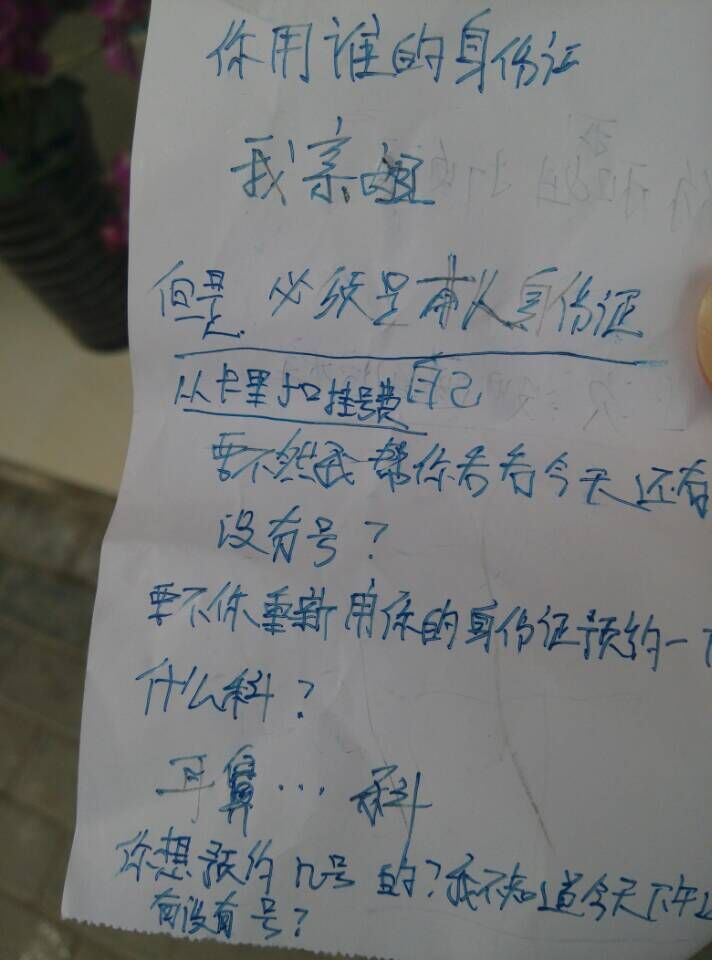 你用谁的身份证
我亲姐
但是 必须是本人身份证
从卡里扣挂号费 自己
要不然我帮你看看今天还有
没有号？
要不你重新用你的身份证预约一下
什么科？
耳鼻…科
你想预约几号的？我不知道今天下午还
有没有号？